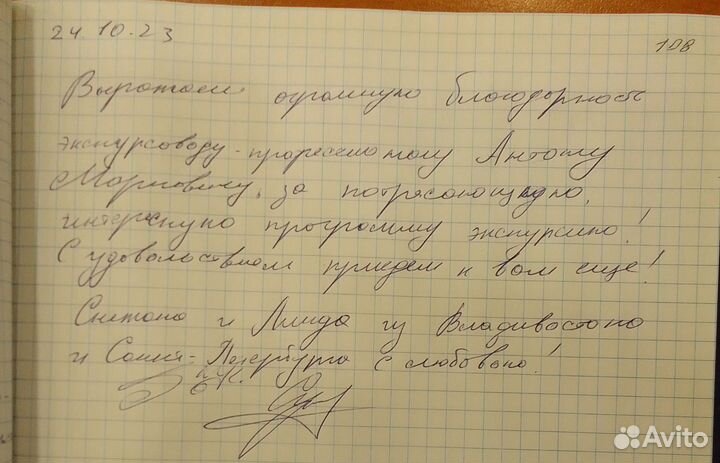 24.10.23
108
Выражаем огромную благодарность
экскурсоводу-профессионалу Антону
Марковичу, за потрясающую,
интересную программу экскурсию!
С удовольствием приедем к вам еще!
Снежана и Линда из Владивостока
и Санкт-Петербурга с любовью!
Avito